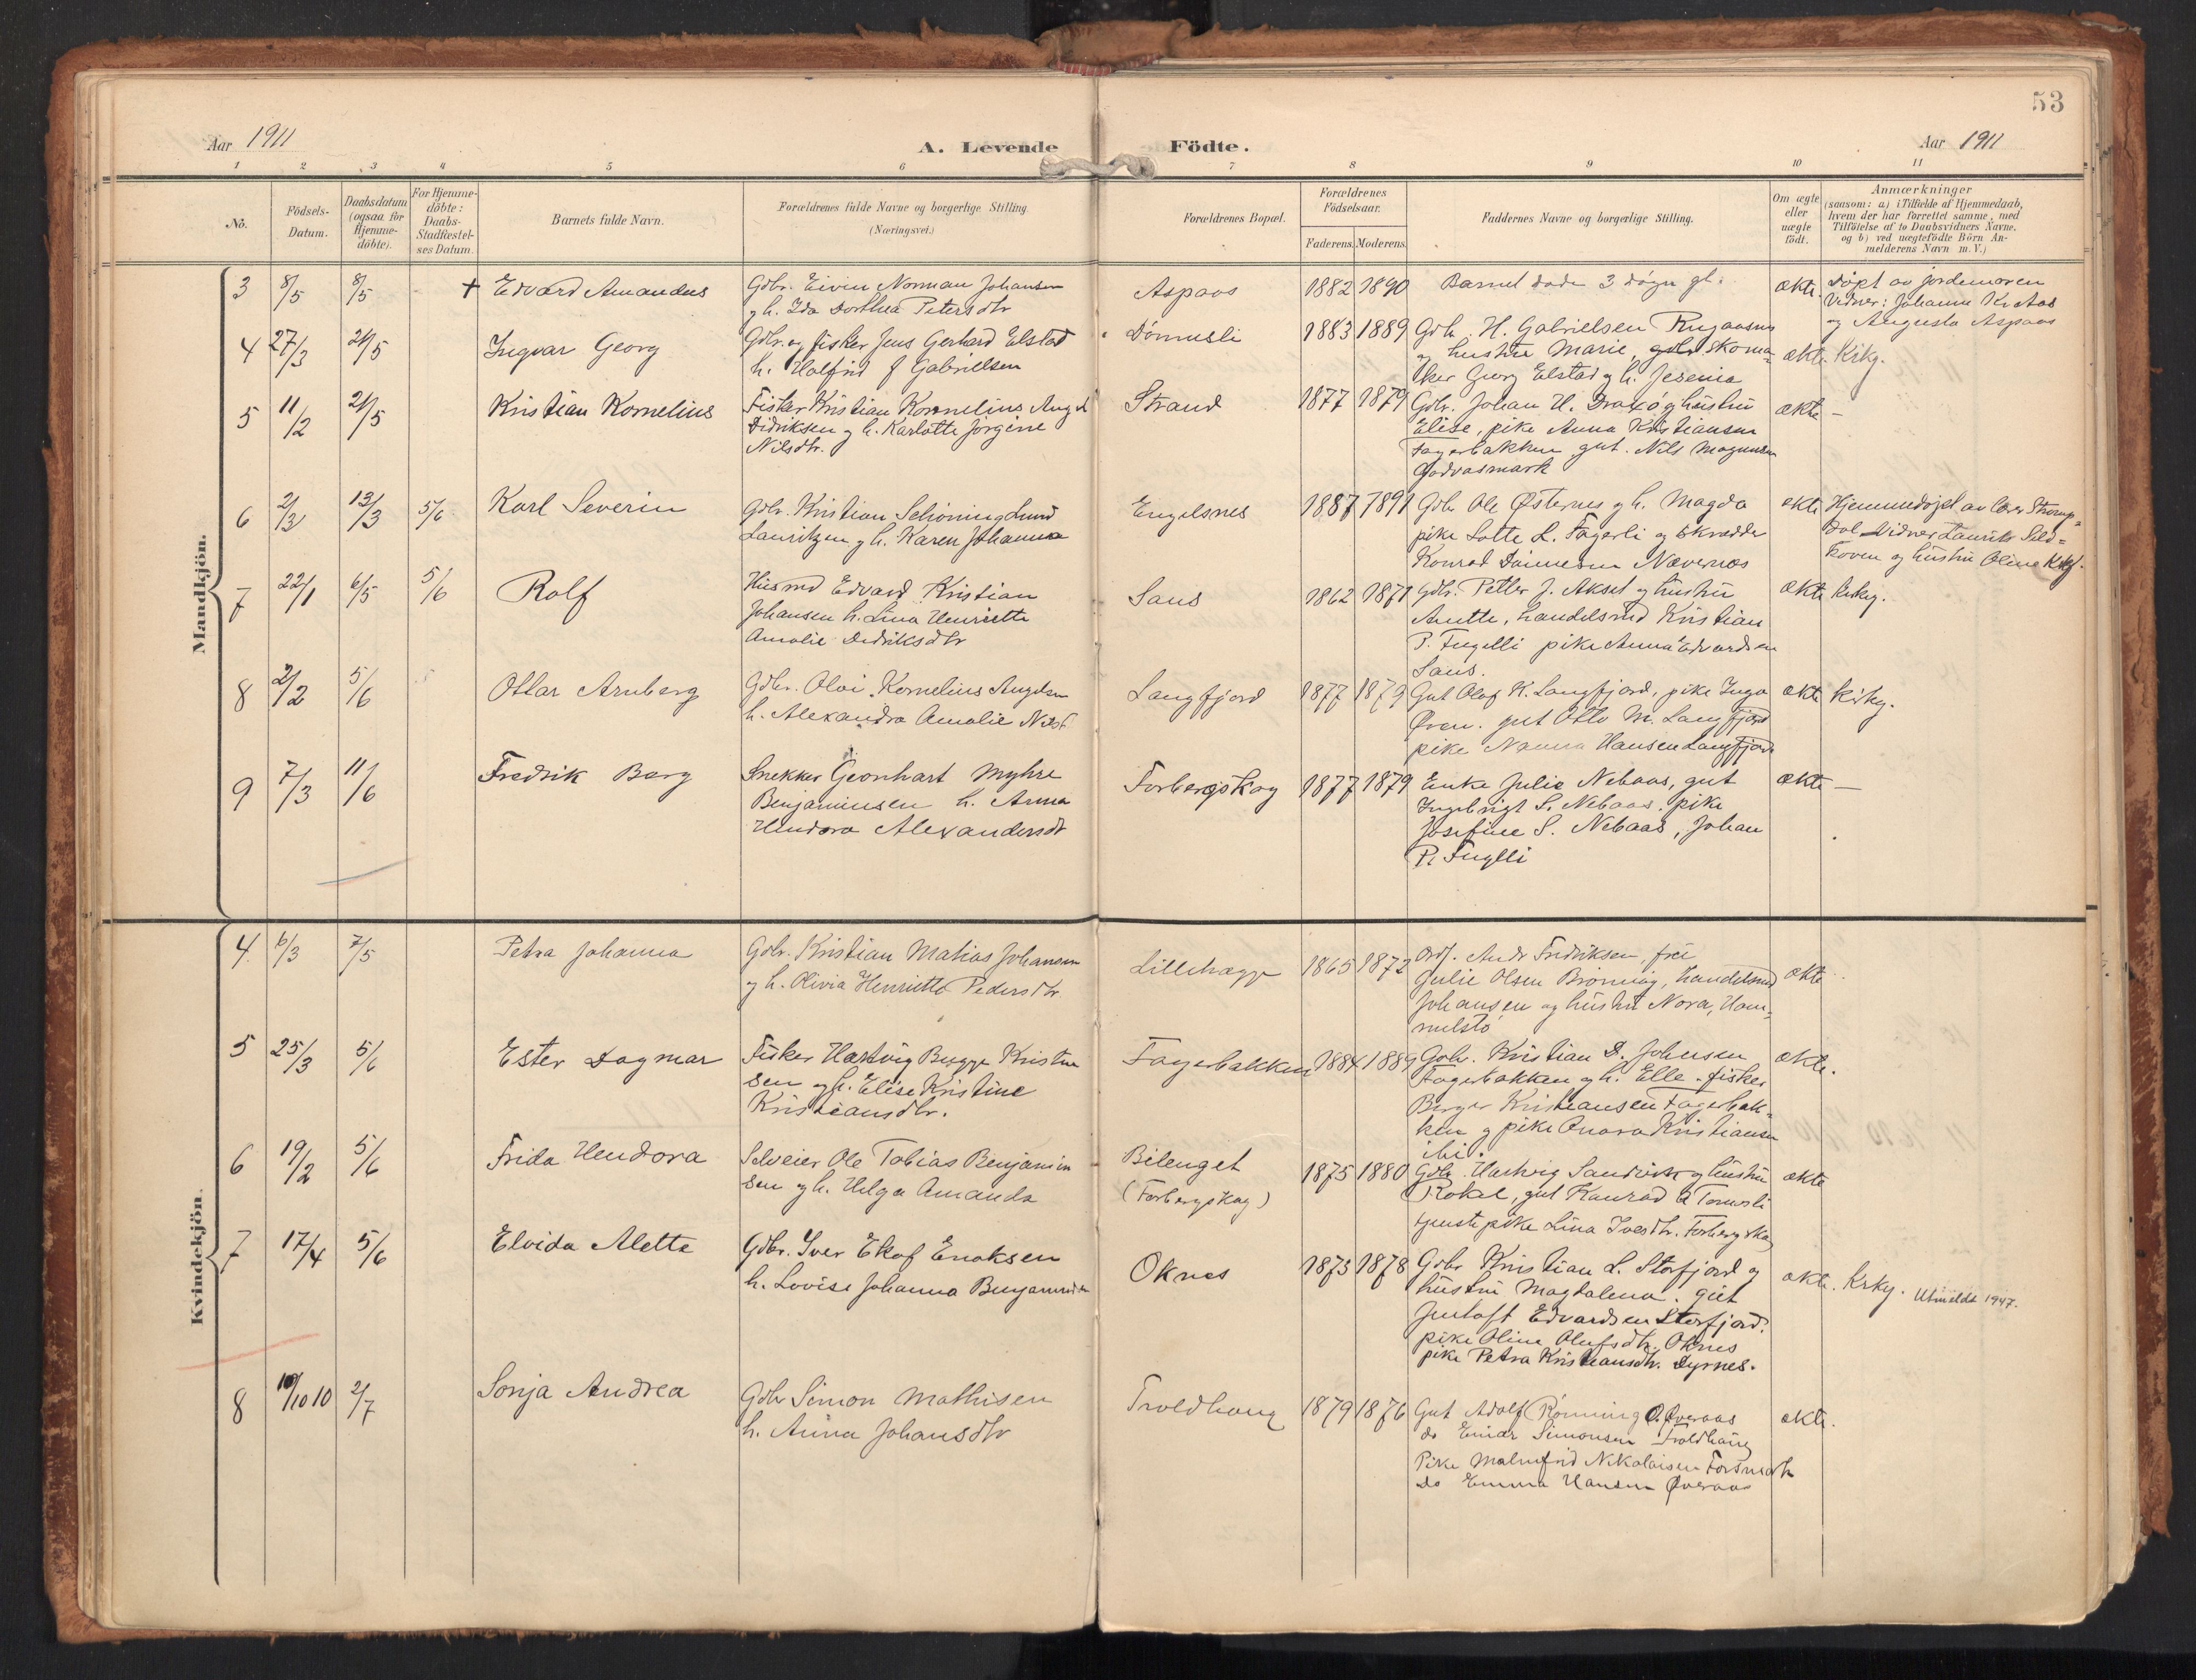 53
Aar 1911
A. Levende Födte.
Aar 1911
1 2 3 4 5 6 7 8 9 10 11
No.
Födsels-Datum.
Daabsdatum (ogsaa for Hjemme-döbte).
For Hjemme-döbte: Daabs-Stadfæstel-ses Datum.
Barnets fulde Navn.
Forældrenes fulde Navne og borgerlige Stilling
(Næringsvei.)
Forældrenes Bopæl.
Forældrenes Födselsaar.
Faderens. Moderens.
Faddernes Navne og borgerlige Stilling.
Om ægte eller uægte födt.
Anmærkninger
(saasom: a) i Tilfælde af Hjemmedaab,
hvem der har forrettet samme, med
Tilföielse af to Daabsvidners Navne,
og b) ved uægtefödte Börn An-
melderens Navn m. V.)
Mandkjön.
3 8/5 8/5 + Edvard Amandus
Gdbr. Eivin Norman Johansen
og h. Ida Dorthea Petersdtr
Aspaas 1882 1890
Barnet døde 3 døgn gl.
ekte.
Døpt av jordemoren
Vidner: Johanna Kr Aas
og Augusta Aspaas
4 27/3 21/5 Ingvar Georg
Gdbr. og fisker Jens Gerhard Elstad
h. Halfrid J Gabrielsen
Dømusli 1883 1889
Gdbr. H. Gabrielsen
og hustru Marie, gdbr skoma-
ker Georg Elstad og h. Jesenia
ekte. Kirkg.
5 11/2 21/5 Kristian Kornelius
Fisker Kristian Kornelius Angel
Didriksen og h. Karlotte Jorgine
Nilsdtr.
Strand 1877 1879
Gdbr. Johan H. Draxö og hustru
Elise, pike Anna Kristiansen
Fagerbakken, gut. Nils Magnusen
ekte —
6 2/3 13/3 5/6 Karl Severin
Gdbr. Kristian Schøning Lund
Lauritzen og h. Karen Johanna
Engelsnes 1887 1891
Gdbr Ole Østernes og h. Magda
pike Lotte L. Fagerli og skrædder
Konrad
ekte
Hjemmedøpt av lærer Stromp-
dal Vidner Laurits Sild-
hoven og hustru Oline Kirkg.
7 22/1 6/5 5/6 Rolf
Husmd Edvard Kristian
Johansen h. Lina Henriette
Amalie Dedriksdtr
Saus 1862 1871
Gdbr. Petter J. Aksel og hustru
Anette, handelsmd Kristian
P. Fugelli pike Anna Edvardsen
Saus.
ekte Kirkg.
8 2/2 5/6 Ottar Arnberg
Gdbr. Olai Kornelius Angelsen
h. Alexandra Amalie Nilsd.
Langfjord 1877 1879
Gut Olaf K. Langfjord, pike Inga
gut Otto M. Langfjord
pike Nanna Hansen Langfjord
ekte Kirkg.
9 7/3 11/6 Fredrik Berg
Snekker Geonhart Myhre
Benjaminsen h. Anna
Hendora Alexandersdtr
Forbergskog 1877 1879
Enke Julie Nebaas, gut
Ingebrigt S. Nebaas, pike
Josefine S. Nebaas, Johan
P. Fuglli
ekte —
Kvindekjön.
4 6/3 7/5 Petra Johanna
Gdbr. Kristian Matias Johansen
og h. Olivia Henriette Pedersdtr.
Lillehagje 1865 1872
Ordf. Andr Fredriksen, frk
Julie Olsen Brönnöy, handelsmd
Johansen og hustru Nora, Hom-
mulstö
ekte
5 25/3 5/6 Ester Dagmar
Fisker Hartvig Bugge Kristian
sen og h. Elise Kristine
Kristiansdtr.
Fagerbakken 1884 1889
Gdbr. Kristian D. Johnsen
Fagerbakken og h. Elle. fisker
Birger Kristiansen Fagerbak-
ken og pike Kristiansen
ibi.
ekte.
6 19/2 5/6 Frida Hendora
Selveier Ole Tobias Benjamin
sen og h. Helga Amanda
Bilenget
(Forbergskog)
1875 1880
Gdbr. Hartvig Sandvik og hustru
Rakel, gut Konrad
tjenstepike Lina Iversdtr. Forbergskog
ekte
7 17/4 5/6 Elvida Alette
Gdbr. Iver Ekof Enoksen
h. Lovise Johanna Benjaminsdtr
Oknes 1873 1878
Gdbr Kristian L. Storfjord og
hustru Magdalena. gut
Gustaft Edvardsen Storfjord.
pike Oline Olufsdtr. Oknes
pike Petra Kristiansdtr. Dyrnes.
ekte. Kirkg. Utmeldt 1947.
8 10/10 10 2/7 Sonja Andrea
Gdbr Simon Mathisen
h. Anna Johansdtr
Troldhaug 1879 1876
Gut Adolf Rönning O. Øveraas
do Einar Simonsen Troldhaug
Pike Malmfrid Nikolaisen Forsmark
do Emma Hansen Øveraas
ekte.